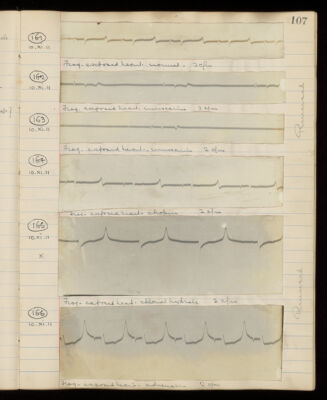 107
161
10.XI.11
Frog. exposed heart. normal. 2 c/m
162
10.XI.11
Frog. exposed heart. muscarine 2 c/m
163
10.XI.11
Frog. exposed heart. muscarine 2 c/m
164
10.XI.11
Frog. exposed heart. atropin 2 c/m
165
10.XI.11
x
Frog. exposed heart. chloral hydrate 2 c/m
166
10.XI.11
Frog. exposed heart. adrenalin 5 c/m